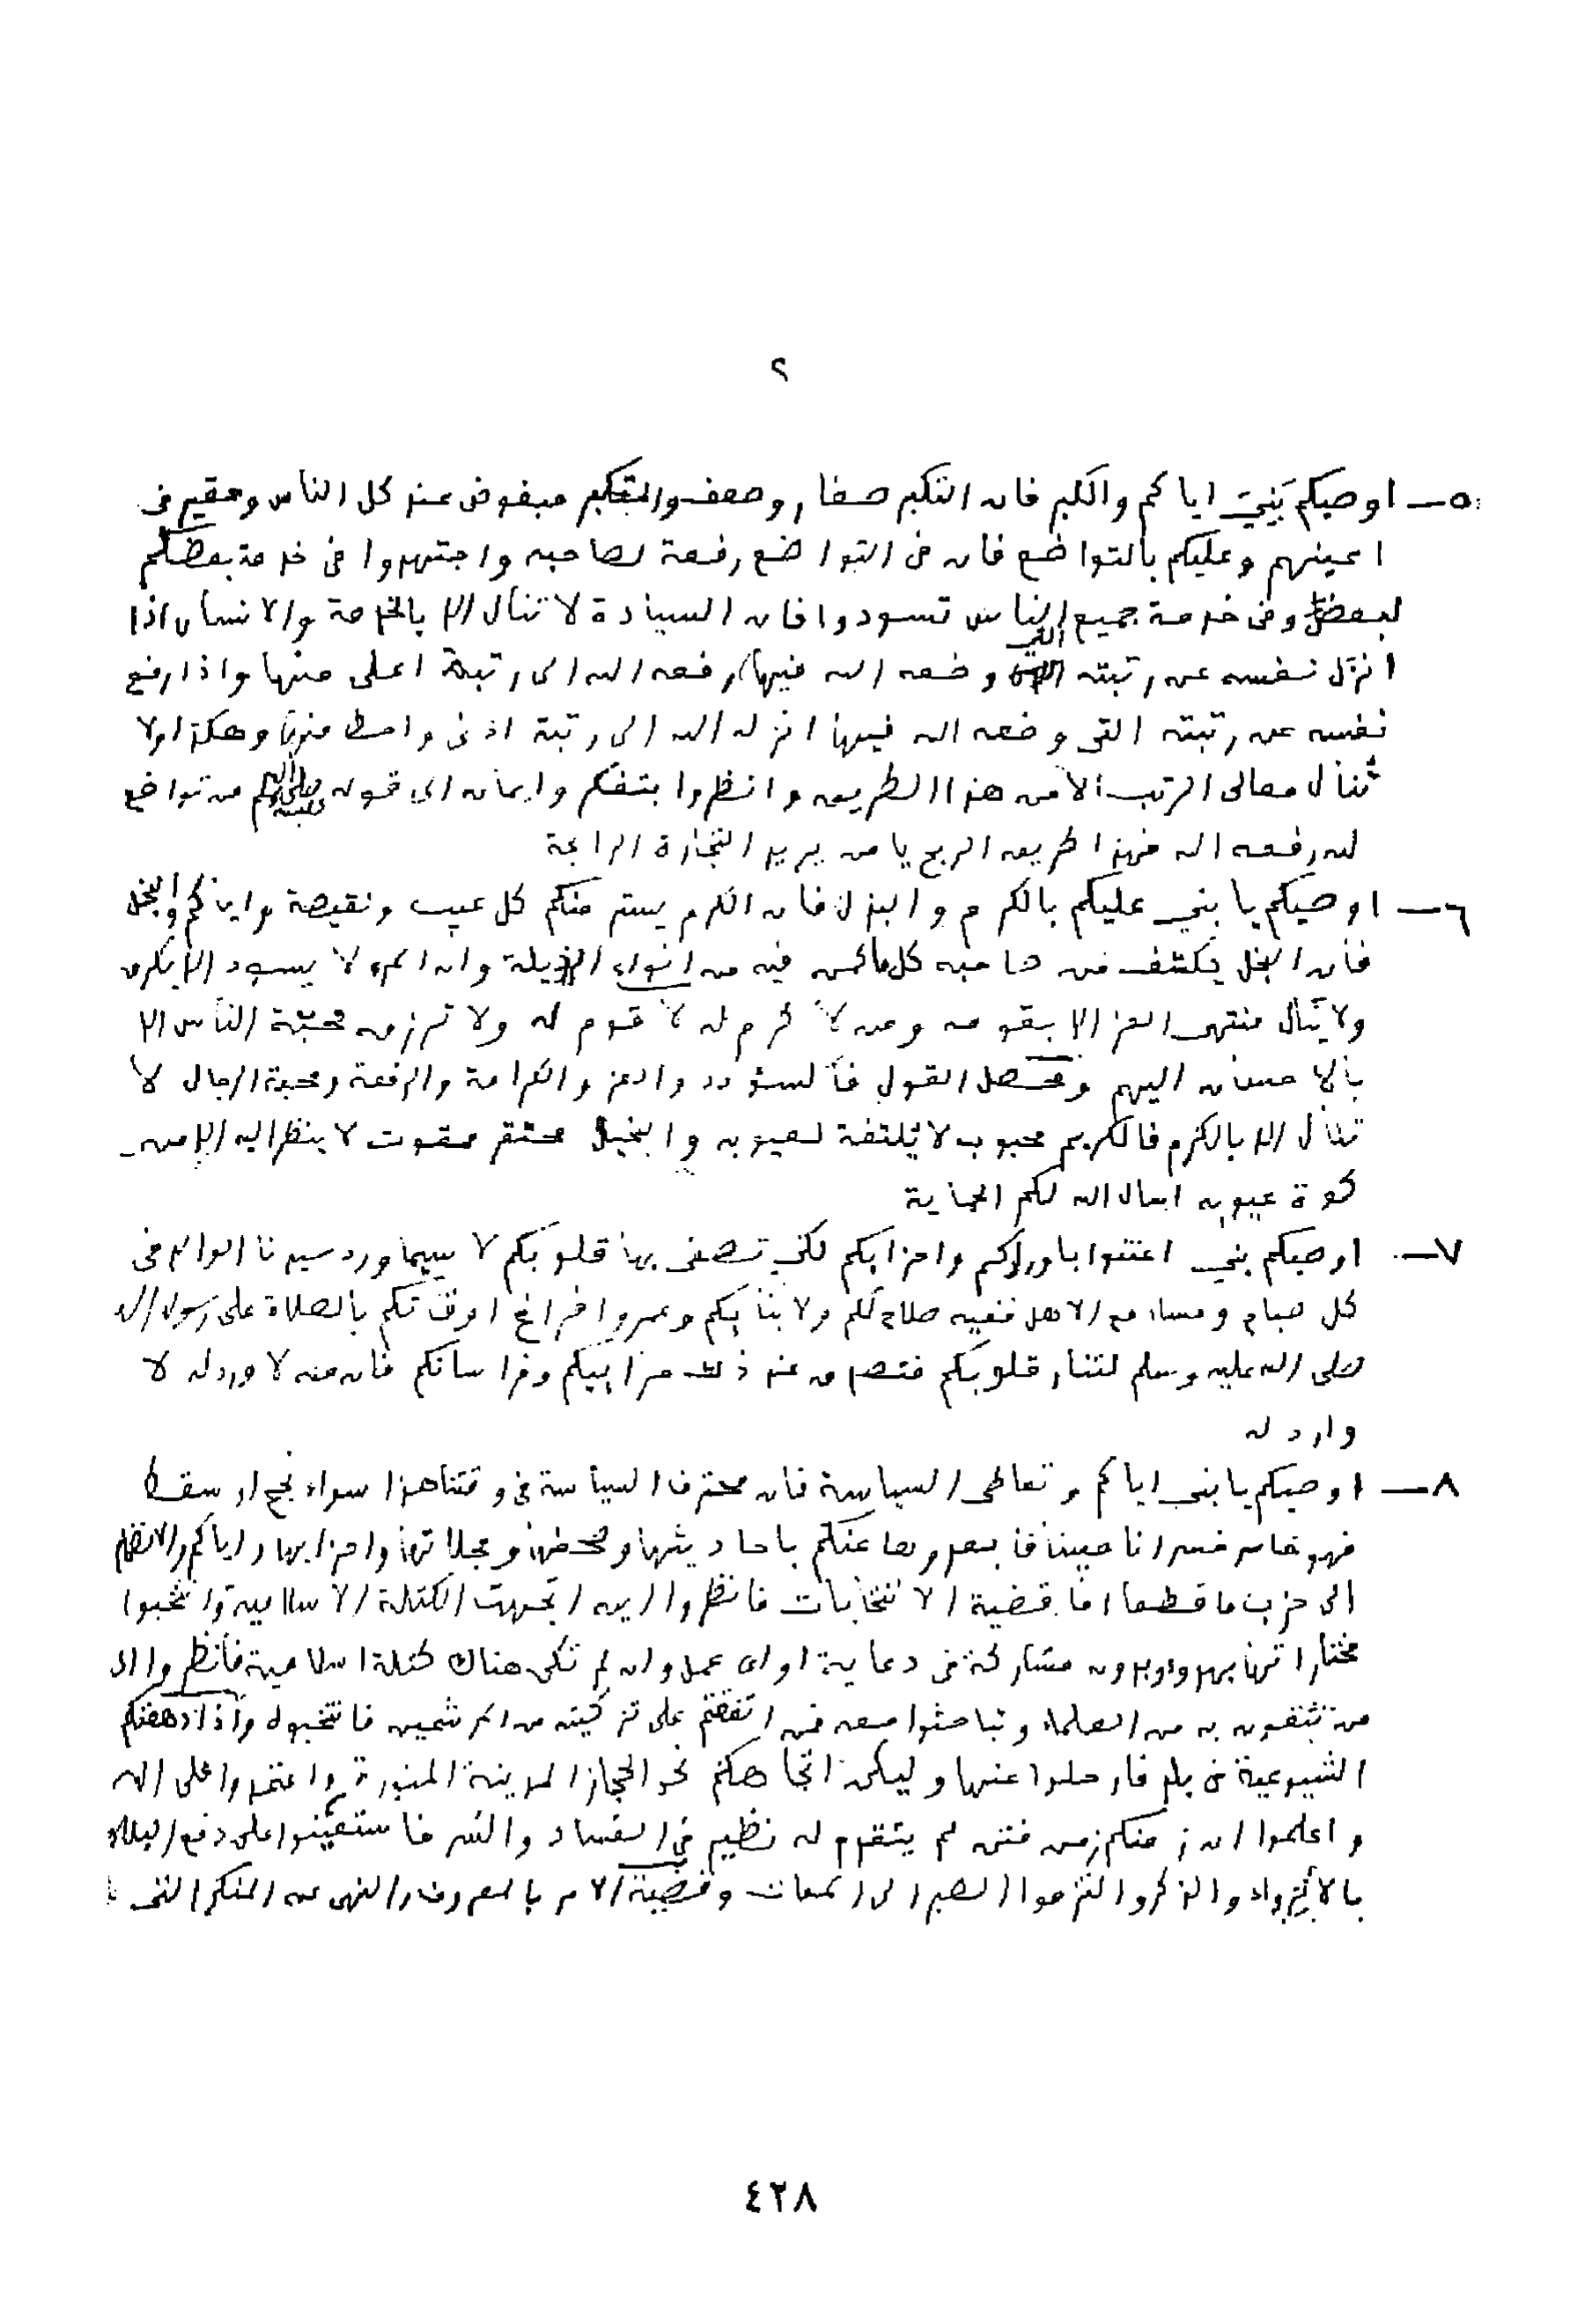 ٢
٥ــ اوصيكم بَنِيَّ اياكم والكبر فان التكبر صغار وضعف والمتكبر مبغوض عند كل الناس وحقير في
اعينهم وعليكم بالتواضع فان في التواضع رفعة لصاحبه واجتهدوا في خدمة بعضكم
لبعض وفي خدمة جميع الناس تسودوا فان السيادة لا تنال الا بالخدمة والانسان اذا
انزل نفسه عن رتبته التي وضعه الله فيها رفعه الله الى رتبة اعلى منها واذا رفع
نفسه عن رتبته التي وضعه الله فيها انزله الله الى رتبة ادنى واحط منها وهكذا ولا
تنال معالي الرتب الا من هذا الطريق وانظروا بتفكر وايمان الى قوله صلى الله عليه وسلم من تواضع
لله رفعه الله فهذا طريق الربح يا من يريد التجارة الرابحة
٦ــ اوصيكم يا بني عليكم بالكرم والبذل فان الكرم يستر منكم كل عيب ونقيصة واياكم والبخل
فان البخل يكشف من صاحبه كل ما كمن فيه من انواع الرذيلة وان المرء لا يسود الا بكرمه
ولا ينال منتهى العز الا بقومه ومن لا كرم له لا قوم له ولا ترزق محبة الناس الا
بالاحسان اليهم ومحصل القول فالسؤدد والعز والكرامة والرفعة ومحبة الرجال لا
تنال الا بالكرم فالكريم محبوب لا يلتفة لعيوبه والبخيل محتقر ممقوت لا ينظر اليه الا من
كوة عيوبه اسال الله لكم الحماية
٧ــ اوصيكم بني اعتنوا باورادكم واحزابكم لكي تصفى بها قلوبكم لا سيما ورد سيدنا الوالد في
كل صباح ومساء مع الاهل ففيه صلاح لكم ولابنائكم وعمروا فراغ اوقاتكم بالصلاة على رسول الله
صلى الله عليه وسلم لتنار قلوبكم فتصدق عند ذلك مرائيكم وفراساتكم فان من لا ورد له لا
وارد له
٨ــ اوصيكم يا بني اياكم وتعاطي السياسة فان محترف السياسة في وقتنا هذا سواء نجح او سقط
فهو خاسر خسرانا مبينا فابعدوها عنكم باحاديثها ومجلاتها واحزابها واياكم والانضمام
الى حزب ما قطعا اما قضية الانتخابات فانظروا اين اتجهت الكتلة الاسلامية وانتخبوا
مختاراتها بهدوء وبدون مشاركة في دعاية او اي عمل وان لم تكن هناك كتلة اسلامية فانظروا الى
من تثقون به من العلماء وتباحثوا معه فمن اتفقتم على تزكيته من المرشحين فانتخبوه واذا دهمتكم
الشيوعية في بلد فارحلوا عنها وليكن اتجاهكم نحو الحجاز المدينة المنورة واعتمدوا على الله
واعلموا ان زمنكم زمن فتن لم يتقدم له نظير في الفساد والشر فاستعينوا على دفع البلاء
بالانزواء والذكر والتزموا الصبر الى الممات وقضية الامر بالمعروف والنهي عن المنكر التي
٤٢٨